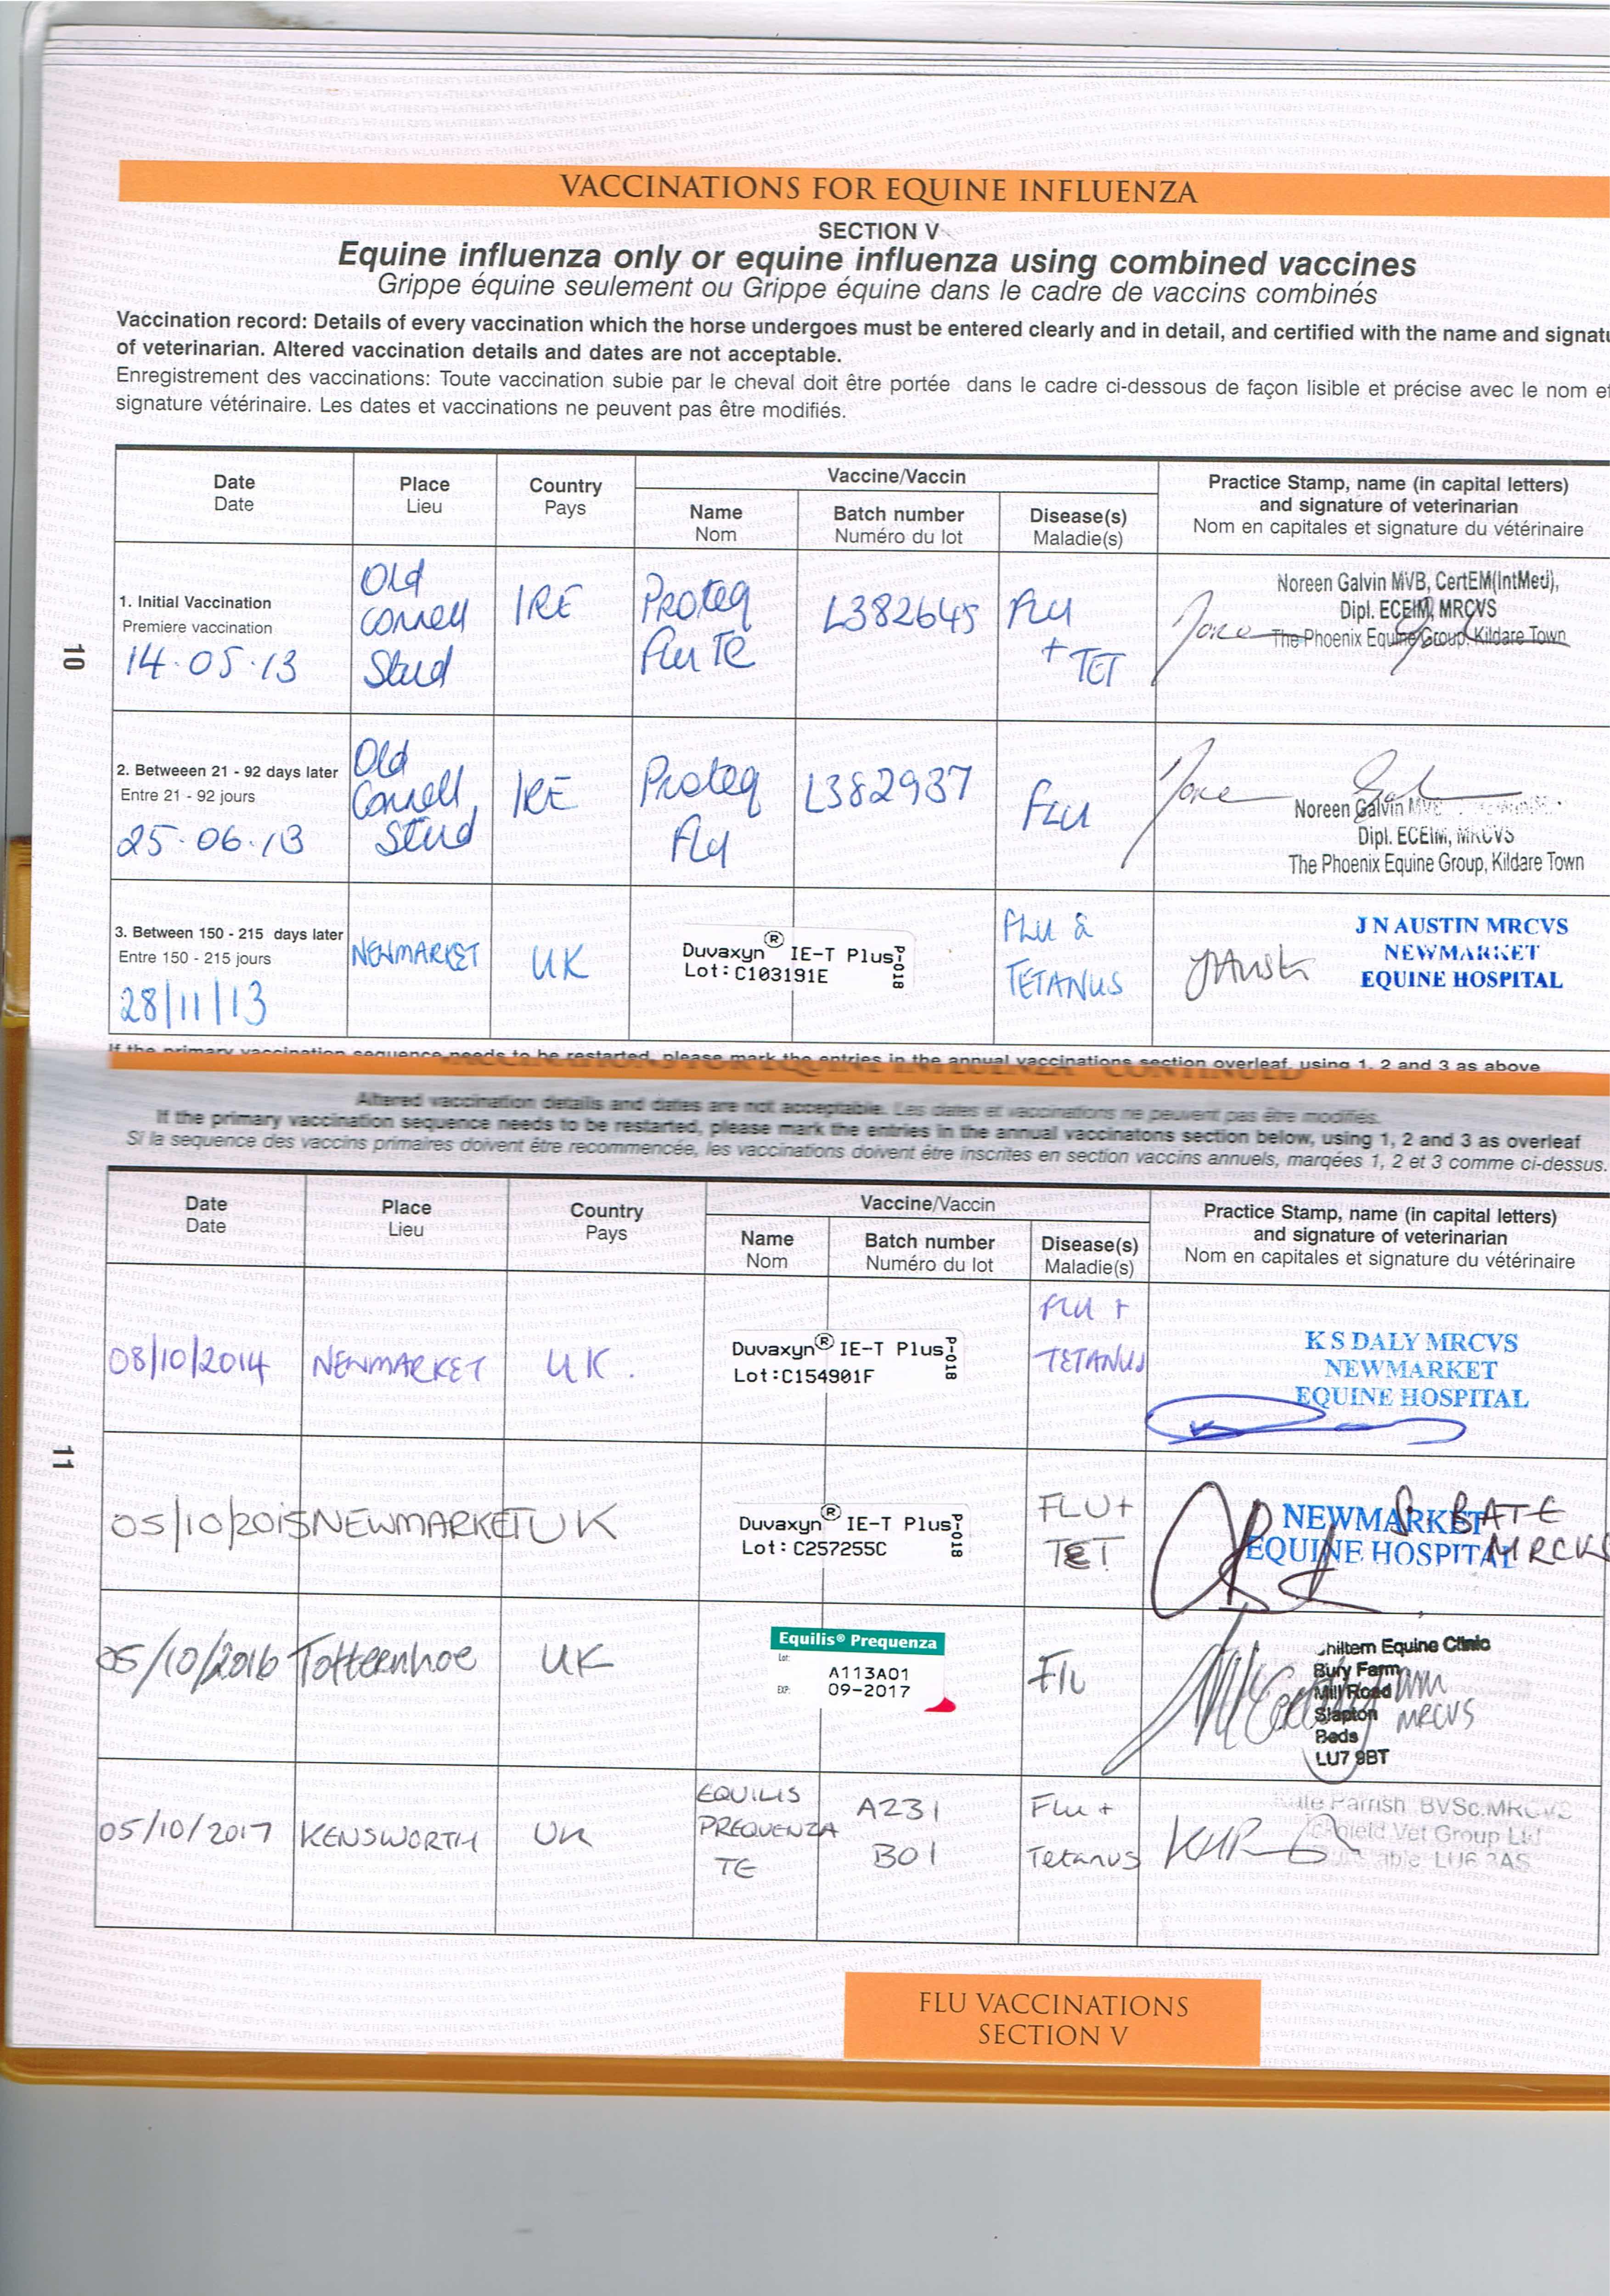 VACCINATIONS FOR EQUINE INFLUENZA
SECTION V
Equine influenza only or equine influenza using combined vaccines
Grippe équine seulement ou Grippe équine dans le cadre de vaccins combinés
Vaccination record: Details of every vaccination which the horse undergoes must be entered clearly and in detail, and certified with the name and signatu
of veterinarian. Altered vaccination details and dates are not acceptable.
Enregistrement des vaccinations: Toute vaccination subie par le cheval doit être portée dans le cadre ci-dessous de façon lisible et précise avec le nom et
signature vétérinaire. Les dates et vaccinations ne peuvent pas être modifiés.
Date
Date
Place
Lieu
Country
Pays
Vaccine/Vaccin
Name
Nom
Batch number
Numéro du lot
Disease(s)
Maladie(s)
Practice Stamp, name (in capital letters)
and signature of veterinarian
Nom en capitales et signature du vétérinaire
1. Initial Vaccination
Premiere vaccination
14.05.13
Old
Connell
Stud
IRE
Proteq
Flu TE
L382645
FLU
+ TET
Noreen Galvin MVB, CertEM(IntMed),
Dipl. ECEIM, MRCVS
The Phoenix Equine Group, Kildare Town
2. Betweeen 21 - 92 days later
Entre 21 - 92 jours
25.06.13
Old
Connell
Stud
IRE
Proteq
Flu
L382937
FLU
Noreen Galvin
Dipl. ECEIM, MRCVS
The Phoenix Equine Group, Kildare Town
3. Between 150 - 215 days later
Entre 150 - 215 jours
28/11/13
NEWMARKET
UK
Duvaxyn® IE-T Plus
Lot:C103191E
P-018
FLU &
TETANUS
JNAustin
J N AUSTIN MRCVS
NEWMARKET
EQUINE HOSPITAL
If the primary vaccination sequence needs to be restarted, please mark the entries in the annual vaccinations section overleaf, using 1, 2 and 3 as above
10
VACCINATIONS FOR EQUINE INFLUENZA CONTINUED
Altered vaccination details and dates are not acceptable. Les dates et vaccinations ne peuvent pas être modifiés.
If the primary vaccination sequence needs to be restarted, please mark the entries in the annual vaccinatons section below, using 1, 2 and 3 as overleaf
Si la sequence des vaccins primaires doivent être recommencée, les vaccinations doivent être inscrites en section vaccins annuels, marqées 1, 2 et 3 comme ci-dessus.
Date
Date
Place
Lieu
Country
Pays
Vaccine/Vaccin
Name
Nom
Batch number
Numéro du lot
Disease(s)
Maladie(s)
Practice Stamp, name (in capital letters)
and signature of veterinarian
Nom en capitales et signature du vétérinaire
08/10/2014
NEWMARKET
UK.
Duvaxyn® IE-T Plus
Lot:C154901F
P-018
FLU +
TETANUS
K S DALY MRCVS
NEWMARKET
EQUINE HOSPITAL
05/10/2015
NEWMARKET
UK
Duvaxyn® IE-T Plus
Lot:C257255C
P-018
FLU+
TET
NEWMARKET
EQUINE HOSPITAL
S. BATE
MRCVS
05/10/2016
Totternhoe
UK
Equilis® Prequenza
Lot:
A113A01
EXP:
09-2017
Flu
Chiltern Equine Clinic
Bury Farm
Mill Road
Slapton
Beds
LU7 9BT
MRCVS
05/10/2017
KENSWORTH
UK
EQUILIS
PREQUENZA
TE
A231
B01
Flu +
Tetanus
Parrish BVSc.MRCVS
Vet Group Ltd
LU6 3AS
11
FLU VACCINATIONS
SECTION V